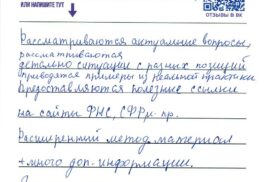 ИЛИ НАПИШИТЕ ТУТ
ОТЗЫВЫ В ВК
Рассматриваются актуальные вопросы,
рассматриваются
детально ситуации с разных позиций
приводятся примеры из реальной практики
Предоставляются полезные ссылки
на сайты ФНС, СФР и пр.
Расширенный метод. материал
+много доп. информации.